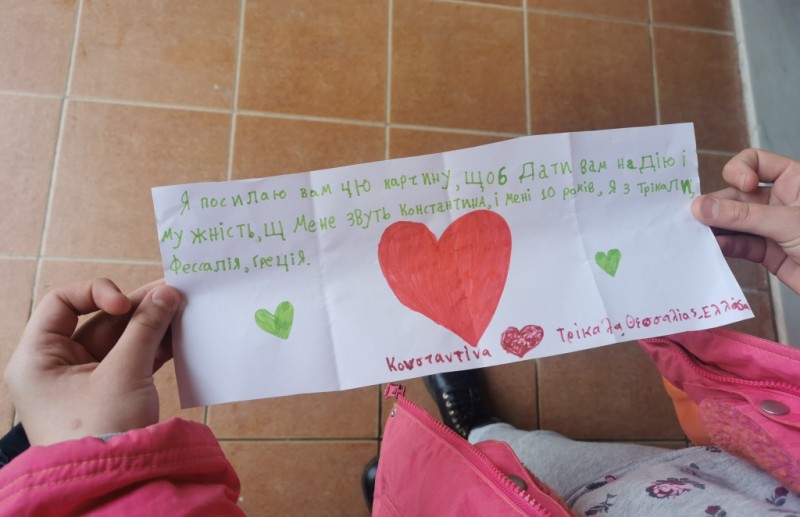 Я посилаю вам цю картину, щоб Дати вам наДію і
мужність, Щ Мене звуть Константина, і мені 10 років, Я з Трікали,
Фессалія, Греція.
Κονσταντίνα Τρίκαλα Θεσσαλίας-Ελλάδα